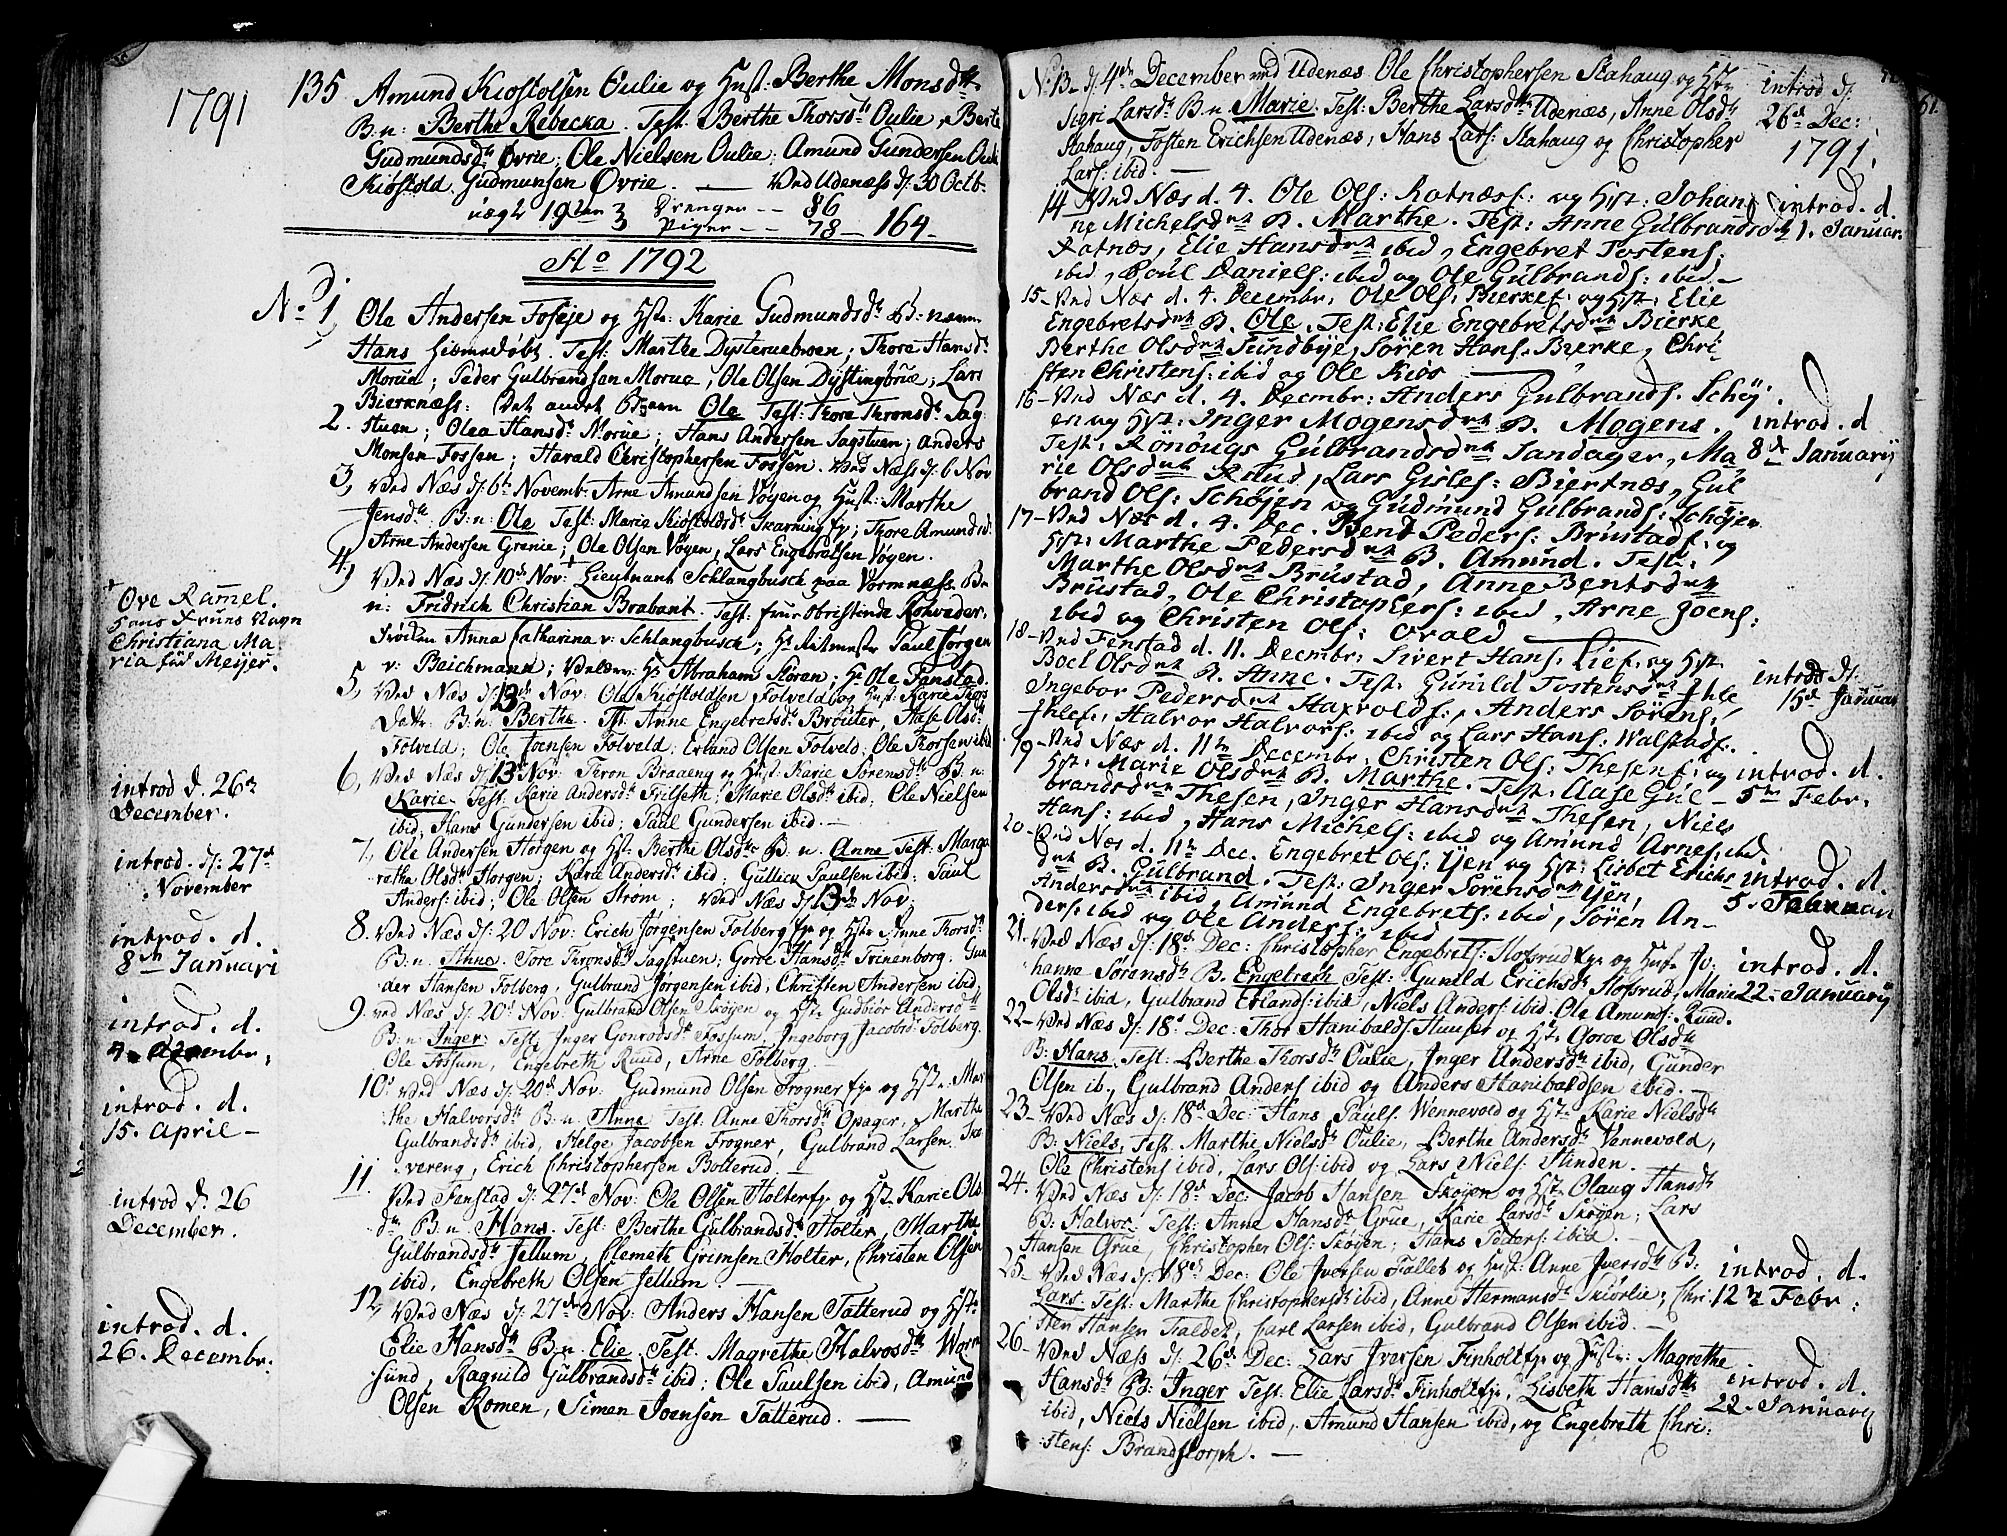 1791
135 Amund Kiøstolsen Oulie og Hust: Berthe Monsdttr
B:n: Berthe Rebecka. Test: Berthe Thorsdtr Oulie, Berte
Gudmundsdtr Øvrie; Ole Nielsen Oulie; Amund Gundersen Ouli
Kiøstold Gudmunsen Øvrie. — Ved Udenæss d: 30 Octb.
Drenger -- 86
Piger -- 78 — 164 —
Ao 1792
No 1, Ole Andersen Foseje og Hstr: Karie Gudmundsdtr B: næmn
Hans hiemmedøbt. Test: Marthe Dysteruebroen; Thore Hansdtr
Morue; Peder Gulbrandsen Morue, Ole Olsen Dystingbrue, Lars
Bierknæss: Det andet B:
2. Ole Test: Thore Thronsdtr Sag
stuen; Olea Hansdtr Morue; Hans Andersen Sagstuen; anders
Monsen Fossen; Harald Christophersen Fossen. Ved Næss d: 6 Nov
3, Ved Næs d: 6te Novemb: Arne Amundsen Vøyen og Hust: Marthe
Jensdtr B:n: Ole Test: Marie Kiøstoldsdtr Skarning; Thore Amundsd:
Arne Andersen Grenie; Ole Olsen Vøyen, Lars Engebretsen Vøyen.
4, Ved Næs d: 10de Nov: + Lieutnant Schlangbusch paa Vormnæss B:
n: Fridrich Christian Brabant. Test: frue Obristinde Rohweder,
Frøiken Anna Catharina v: Schlangbusch; Hr Ritmester Paul Jørgen
v: Beichmann; Hr Abraham Storen; Hr Ole Fanstad.
+ Ove Ramel.
hans Fruns Nagn
Christiana Ma
ria fød Meyer.
5, Ved Næs d: 13de Nov: Ole Kiøstoldsen Folveld og Hust: Karie Thors
Dattr: B:n: Berthe. Tst: Anne Engebretsdtr Brouter, Aase Olsdtr
Folveld; Ole Joensen Folveld; Erland Olsen Folveld; Ole Thorsen ibid
6, Ved Næs d: 13 Nov: Thron Braaeng og Hust: Karie Sørensdtr B:n:
Karie. Test: Karie Andersdtr Frilseth; Marie Olsdtr ibid; Ole Nielsen
ibid; Hans Gundersen ibid; Paul Gundersen ibid. —
introd d. 26de
December.
7, Ole Andersen Horgen og Hst: Berthe Olsdtr B:n: Anne Test: Marga
rethe Olsdtr Horgen; Karie Andersdtr ibid; Gullick Paulsen ibid; Paul
Anders: ibid; Ole Olsen Strøm; Ved Næs d: 13de Nov:
introd. d: 27de
November
8. Ved Næs d: 20 Nov: Erich Jørgensen Folberg og Hstr Anne Thorsdtr
B:n. Anne. Tore Thronsdtr Sagstuen; Goroe Hansdtr Trinenborg. Gun
der Hansen Folberg, Gulbrand Jørgensen ibid, Christen Andersen ibid,
introd. d.
8de Januari
9. ved Næs d: 20d Nov: Gulbrand Olsen Skøyen og Hstr Gudbiør Andersdtr
B:n: Inger: Test, Inger Gonrodsdtr Fossum, Ingeborg Jacobsd: Folberg.
Ole Fossum, Engebreth Ruud, Arne Folberg.
introd. d.
10. Ved Næs d: 20d Nov: Gudmund Olsen Frogner og Hstr: Mar
the Halvorsdtr B:n: Anne Test: Anne Thorsdtr Opager, Marthe
Gulbrandsdtr ibid, Helge Jacobsen Frogner, Gulbrand Larsen Ska
vereng, Erich Christophersen Bolterud. —
introd. d.
15. April —
11. Ved Fanstad d: 27d Nov: Ole Olsen Holter og Hst: Karie Ols
dtr B:n: Hans. Test: Berthe Gulbrandsdtr Holter, Marthe
Gulbrandsdtr Jellum, Clemeth Grimsen Holter, Christen Olsen
ibid, Engebreth Olsen Jellum —
introd d. 26
December.
12, Ved Næs d: 27de Nov: Anders Hansen Tatterud og Hstr
Elie Hansdtr B:n: Elie Test: Magrethe Halvosdtr Worm
sund, Ragnild Gulbrandsdtr ibid; Ole Paulsen ibid, Amund
Olsen Romen, Simen Joensen Tatterud. —
introd. d.
26. Decembr.
No 13. d: 4de December ved Udenæs Ole Christophersen Stahaug og Hstr
Sigri Larsdtr B:n. Marie. Test: Berthe Larsdtr Udenæs, Anne Olsdtr
Stahaug, Tosten Erichsen Udenæs, Hans Lars: Stahaug og Christopher
Lars: ibid. —
introd d:
26d Dec:
1791.
14 — Ved Næs d. 4. Ole Ols: Ratnæss: og Hst: Johan
ne Michelsdtr B. Marthe. Test: Anne Gulbrandsdtr
Ratnæs, Elie Hansdtr ibid, Engebret Tostens:
ibid, Poul Daniels: ibid og Ole Gulbrands: ibid —
introd. d.
1. Januar.
15 — Ved Næs d. 4. Decembr: Ole Ols: Bierkef: og Hst: Elie
Engebretsdtr B. Ole. Test: Elie Engebretsdtr Bierke,
Berthe Olsdtr Sundbye, Sören Hans: Bierke, Chri
sten Christens: ibid og Ole Kiös —
16 — Ved Næs d. 4. Decembr: Anders Gulbrands. Schöy
en og Hst: Inger Mogensdtr B. Mogens.
Test: Rönöugs Gulbrandsdtr Sandager, Ma
rie Olsdtr Rud, Lars Gisles: Biertnæs, Gul
brand Ols: Schöjen og Gudmund Gulbrands: Schöjen
introd. d
8de Januarij
17 — Ved Næs d. 4. Dec. Bend Peders: Brustadf: og
Hst: Marthe Pedersdtr B. Amund. Test:
Marthe Olsdtr Brustad, Anne Bentsdtr
Brustad, Ole Christophers: ibid, Arne Joens:
ibid og Christen Ols: Ovald —
18 — Ved Fenstad d. 11. Decembr: Sivert Hans: Lief: og Hst
Boel Olsdtr B. Anne. Test: Gunild Tostensdtr Ihle
Ingebor Pedersdtr Haxvolds:, Anders Sörens:
Ihlef:, Halvor Halvors: ibid og Lars Hans: Walstadf:
introd d:
15d Januar
19 — Ved Næs d. 11te Decembr: Christen Ols: Thesenf: og
Hst: Marie Olsdtr B. Marthe. Test: Aase Gul —
brandsdtr Thesen, Inger Hansdtr Thesen, Niels
Hans: ibid, Hans Michels: ibid og Amund Arnes: ibid
introd. d.
5te Febr.
20 — Ved Næs d. 11te Dec. Engebret Ols: Ijen og Hst: Lisbet Erichs
dtr B. Gulbrand. Test: Inger Sörensdtr Ijen,
Andersdtr ibid, Amund Engebrets: ibid, Sören An —
ders: ibid og Ole Anders: ibid
introd. d.
21. Ved Næs d: 18d Dec: Christopher Engebrets: Hofsrud og Hust Jo,
hanne Sørensdtr B. Engebreth Test: Gunild Erichsdtr Hofsrud, Marie
Olsdtr ibid, Gulbrand Erlands: ibid, Niels Anders: ibid. Ole Amunds: Ruud.
introd. d.
22. Januarij
22 — Ved Næs d: 18d Dec: Thor Hanibalds: og Hstr Goroe Olsdtr
B: Hans. Test: Berthe Thorsdtr Oulie, Inger Andersdtr ibid, Gunder
Olsen ib., Gulbrand Anders ibid og Anders Hanibaldsen ibid. —
23 — Ved Næs d: 18d Dec: Hans Pauls: Wennevold og Hstr Karie Nielsdtr
B: Niels, Test: Marthe Nielsdtr Oulie, Berthe Andersdtr Vennevold,
Ole Christens ibid, Lars Ols: ibid og Lars Niels: Hinden.
24. Ved Næs d: 18d Dec: Jacob Hansen Skøyen og Hstr Olaug Hansdtr
B: Halvor Test: Anne Hansdtr Grue, Karie Larsdtr Skøyen; Lars
Hansen Grue, Christopher Ols: Skøyen; Hans Peders: ibid. —
25 — Ved Næs d: 18d Dec: Ole Iversen Fallet og Hust: Anne Iversdtr B:
Lars. Test: Marthe Christophersdtr ibid, Anne Hermansdtr Skiørlie; Chri
sten Hansen Faldet, Carl Larsen ibid, Gulbrand Olsen ibid. —
introd. d.
12te Febr:
26 — Ved Næss d: 26d Dec: Lars Iversen Finholt og Hustr: Magrethe
Hansdtr B: Inger Test: Elie Larsdtr Finholt, Lisbeth Hansdtr
ibid, Niels Nielsen ibid, Amund Hansen ibid, og Engebreth Chri:
stens: Brandstorph. —
introd. d.
22. Januarij